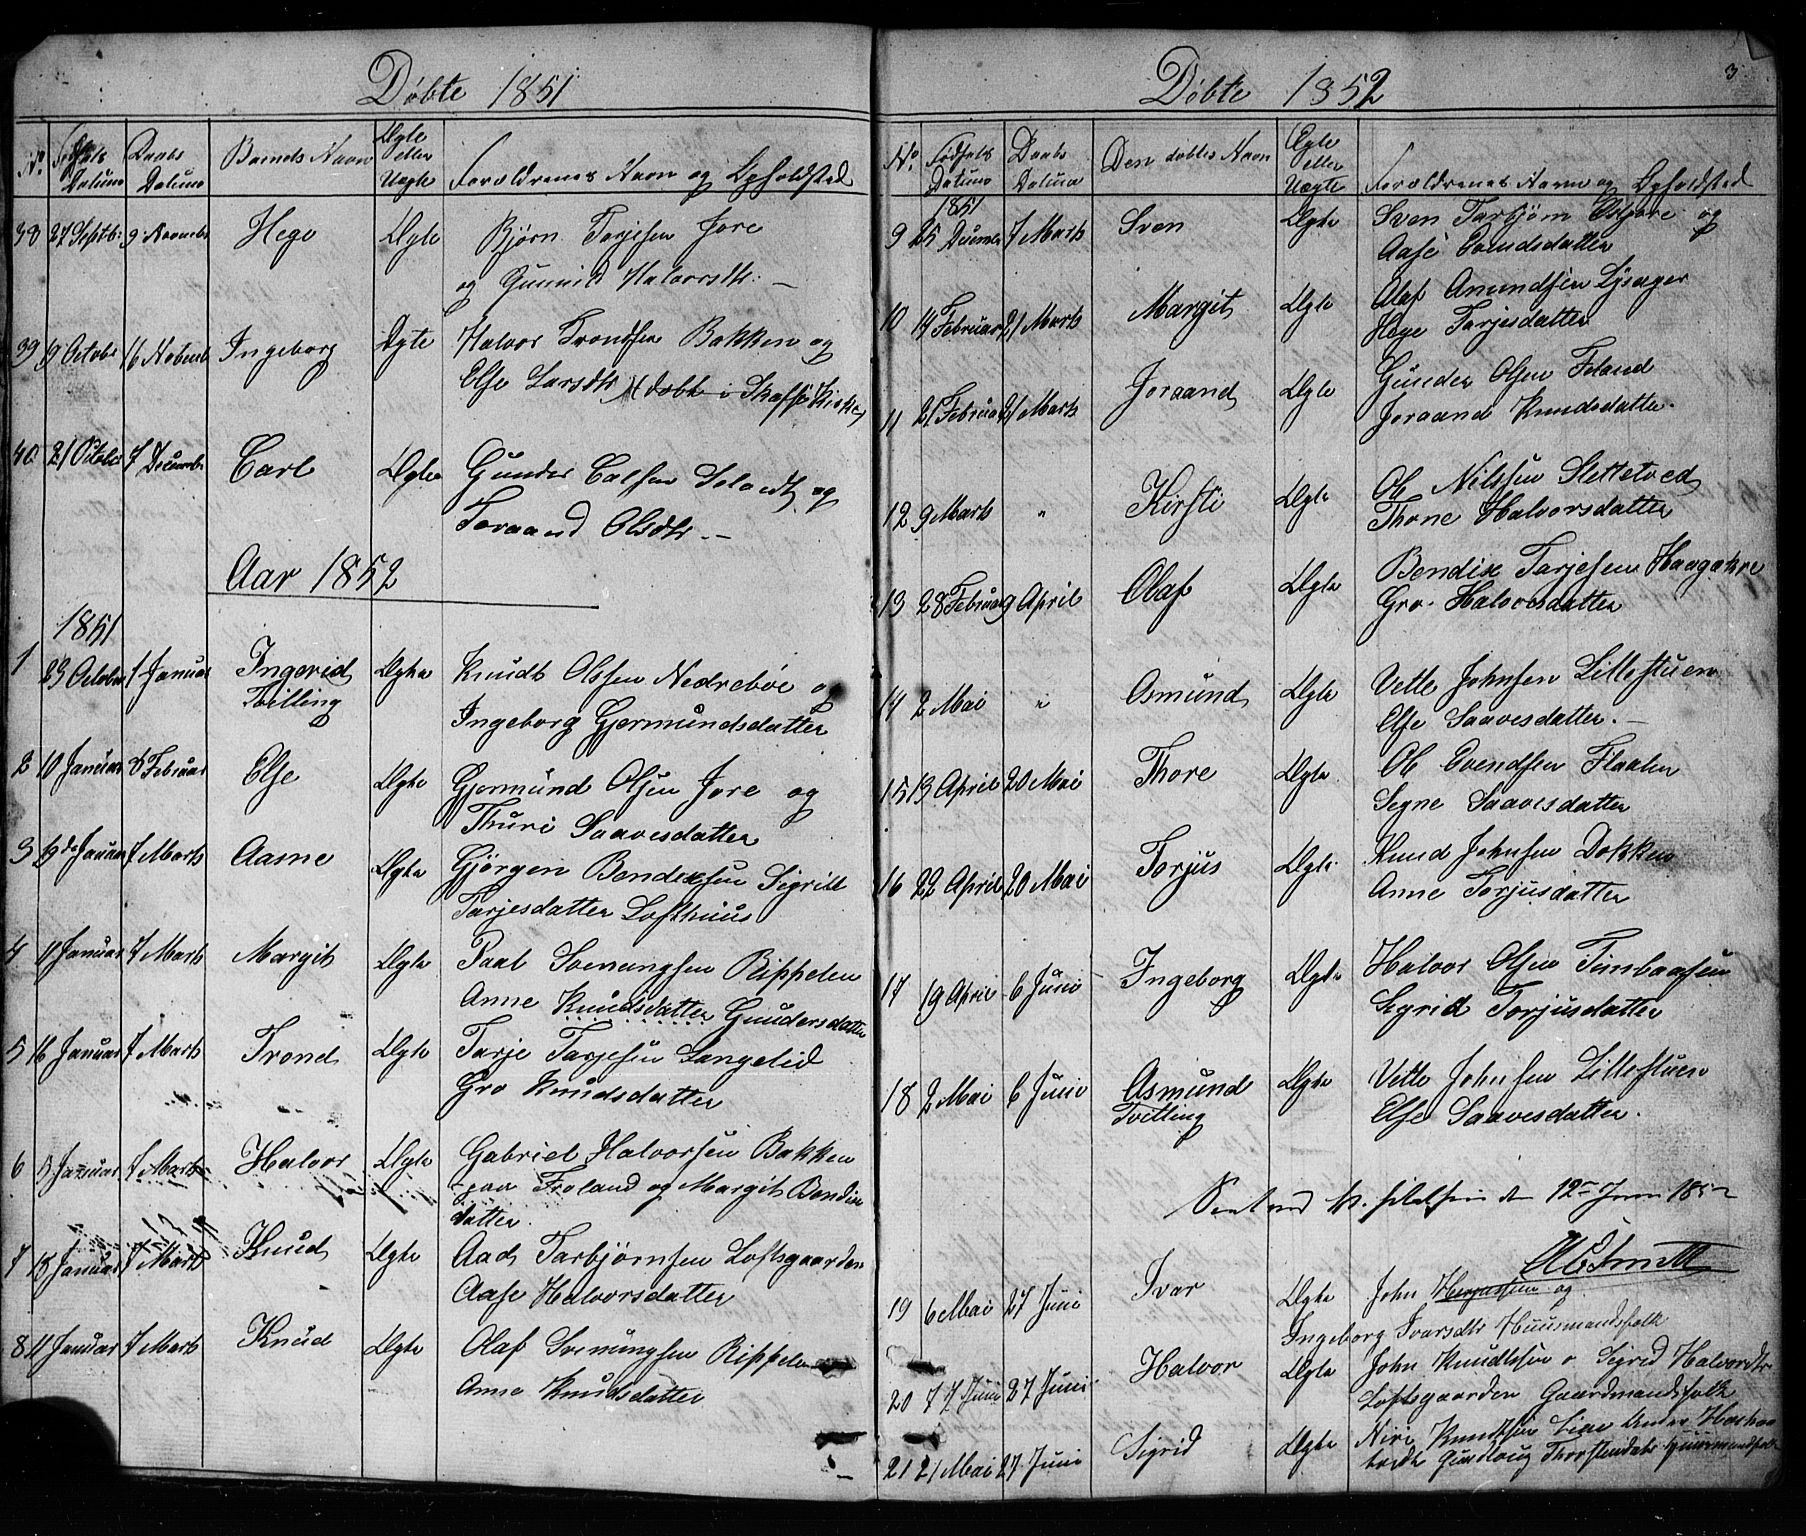 Døbte 1851
No
Fødsels Datum
Daabs Datum
Barnets Navn
Ægte eller Uægte
Forældrenes Navn og Opholdsted
38 27 Septb: 9 Novmbr Hege Ægte Bjørn Tarjesen Jore
og Gunnild Halvorsdtr: —
39 9 Octobr 16 Novemb Ingeborg Ægte Halvor Trondsen Bakken og
Else Larsdtr døbt i Skafse Kirke
40 21 Octobr 7 Decembr Carl Ægte Gunder
og
Joraand Olsdtr. —
Aar 1852
1851
1 23 October 1 Januar Ingerid Ægte Knudt Olsen Nedrebøe og
Tvilling Ingeborg Gjermundsdatter
2 10 Januar 8 Februar Else Ægte Gjermund Olsen Jore og
Thuri Saavesdatter
3 Januar 7 Marts Aasne Ægte Gjørgen Bendixsen Sigrid
Tarjesdatter Lofthuus
4 11 Januar 7 Marts Margit Ægte Paal Svenungsen Rippelen
Anne Knudsdatter Gundersdatter
5 16 Januar 7 Marts Trond Ægte Tarje Tarjesen Langelid
Gro Knudsdatter
6 Januar 7 Marts Halvor Ægte Gabriel Halvorsen Bakken
paa Froland og Margit Bendix
datter.
7 15 Januar 7 Marts Knud Ægte Aad Tarbjørnsen Loftsgaarden
Aase Halvorsdatter
8 11 Januar 7 Marts Knud Ægte Olaf Svenungsen Rippelen
Anne Knudsdatter
Døbte 1852
3
No
Fødsels Datum
Daabs Datum
Den døbtes Navn
Ægte eller Uægte
Forældrenes Navn og Opholdsted
1851
9 25 Decembr 7 Marts Sven Ægte Sven Tarbjørn og
Aase
10 14 Februar 21 Marts Margit Ægte Olaf Amundsen Lysager
Hege Tarjesdatter
11 21 Februar 21 Marts Joraand Ægte Gunder Olsen Feland
Joraand Knudsdatter.
12 9 Marts " Kirsti Ægte Ole Nilssen Slettetved
Thone Halvorsdatter
13 28 Februar 9 April Olaf Ægte Bendix Tarjesen
Gro Halvorsdatter
14 2 Mai " Asmund Ægte Vetle Johnsen Lillestuen
Else Saavesdatter. —
15 13 April 20 Mai Thore Ægte Ole Evendsen Flaaten
Segne Saavesdatter
16 22 April 20 Mai Torjus Ægte Knud Johnsen Dokken
Anne Torjusdatter
17 19 April 6 Juni Ingeborg Ægte Halvor Olsen
Sigrid Torjusdatter
18 2 Mai 6 Juni Asmund Ægte Vetle Johnsen Lillestuen
Tvilling Else Saavesdatter.
den 12 Juni 1852
19 6 Mai 27 Juni Ivar Ægte John og
Ingeborg Ivarsdtr Huusmandsfolk
20 Juni 27 Juni Halvor Ægte John Knudtsen o Sigrid Halvordtr
Loftsgaarden Gaardmandsfolk
21 21 Mai 27 Juni Sigrid Ægte Knudtsen
Thorsteindatr Huusmandsfolk